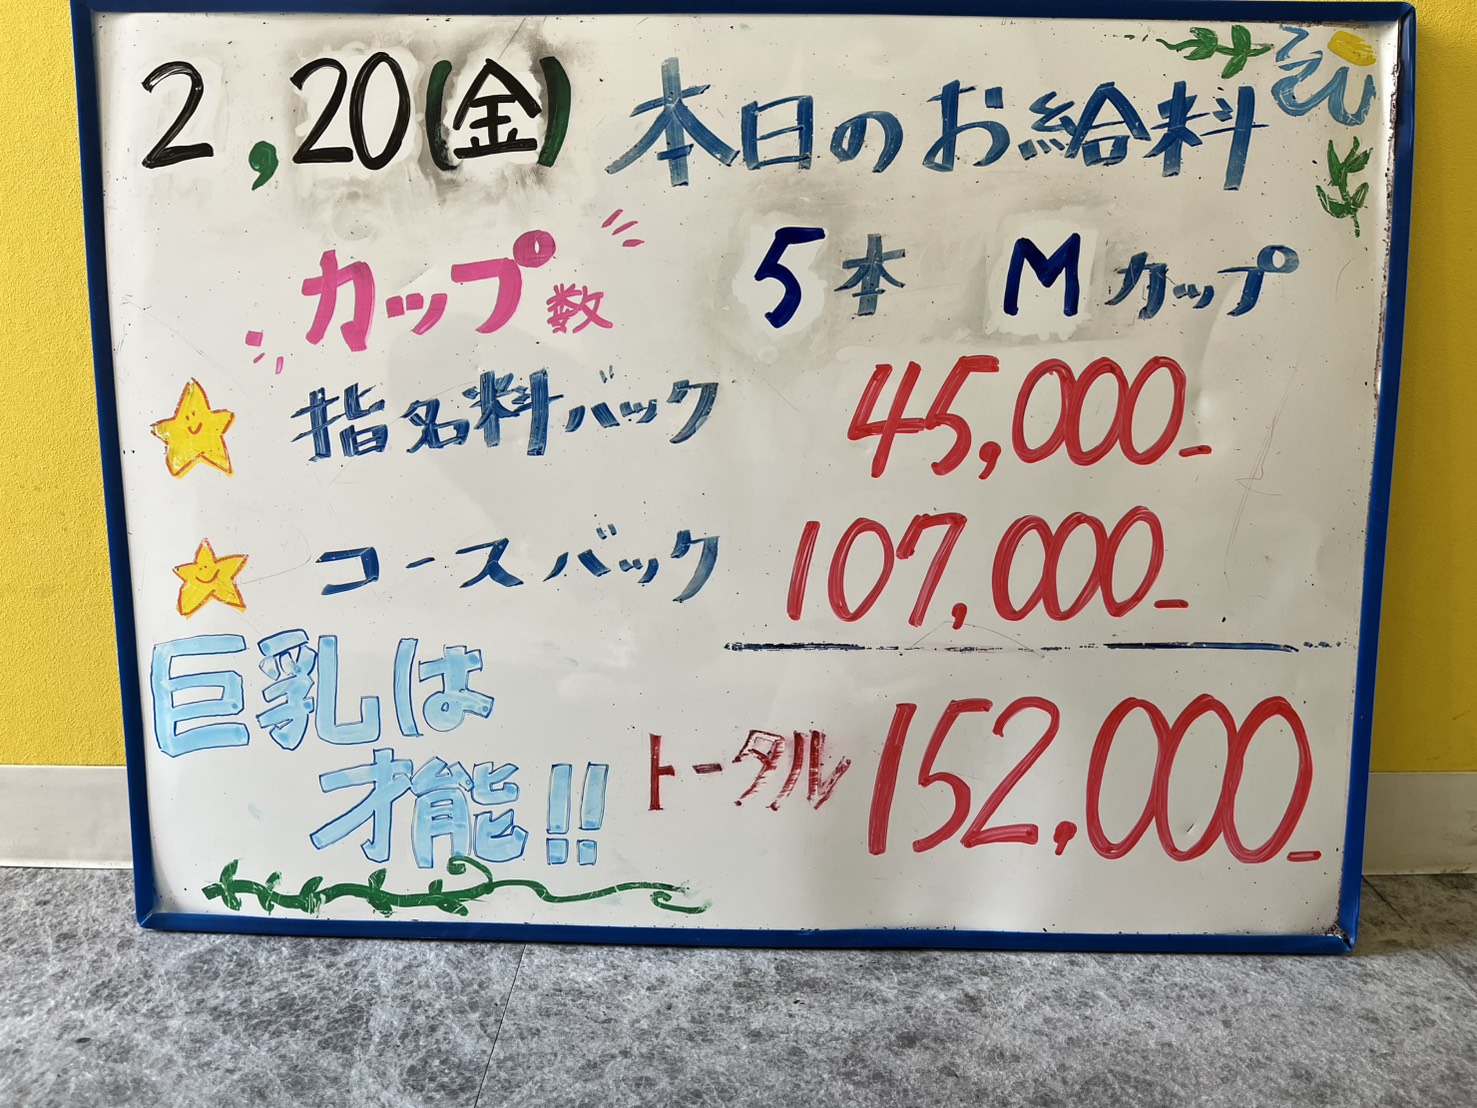 2,20(金) 本日のお給料
カップ数 5本 Mカップ
指名料バック 45,000-
コースバック 107,000-
巨乳は
才能!!
トータル 152,000-